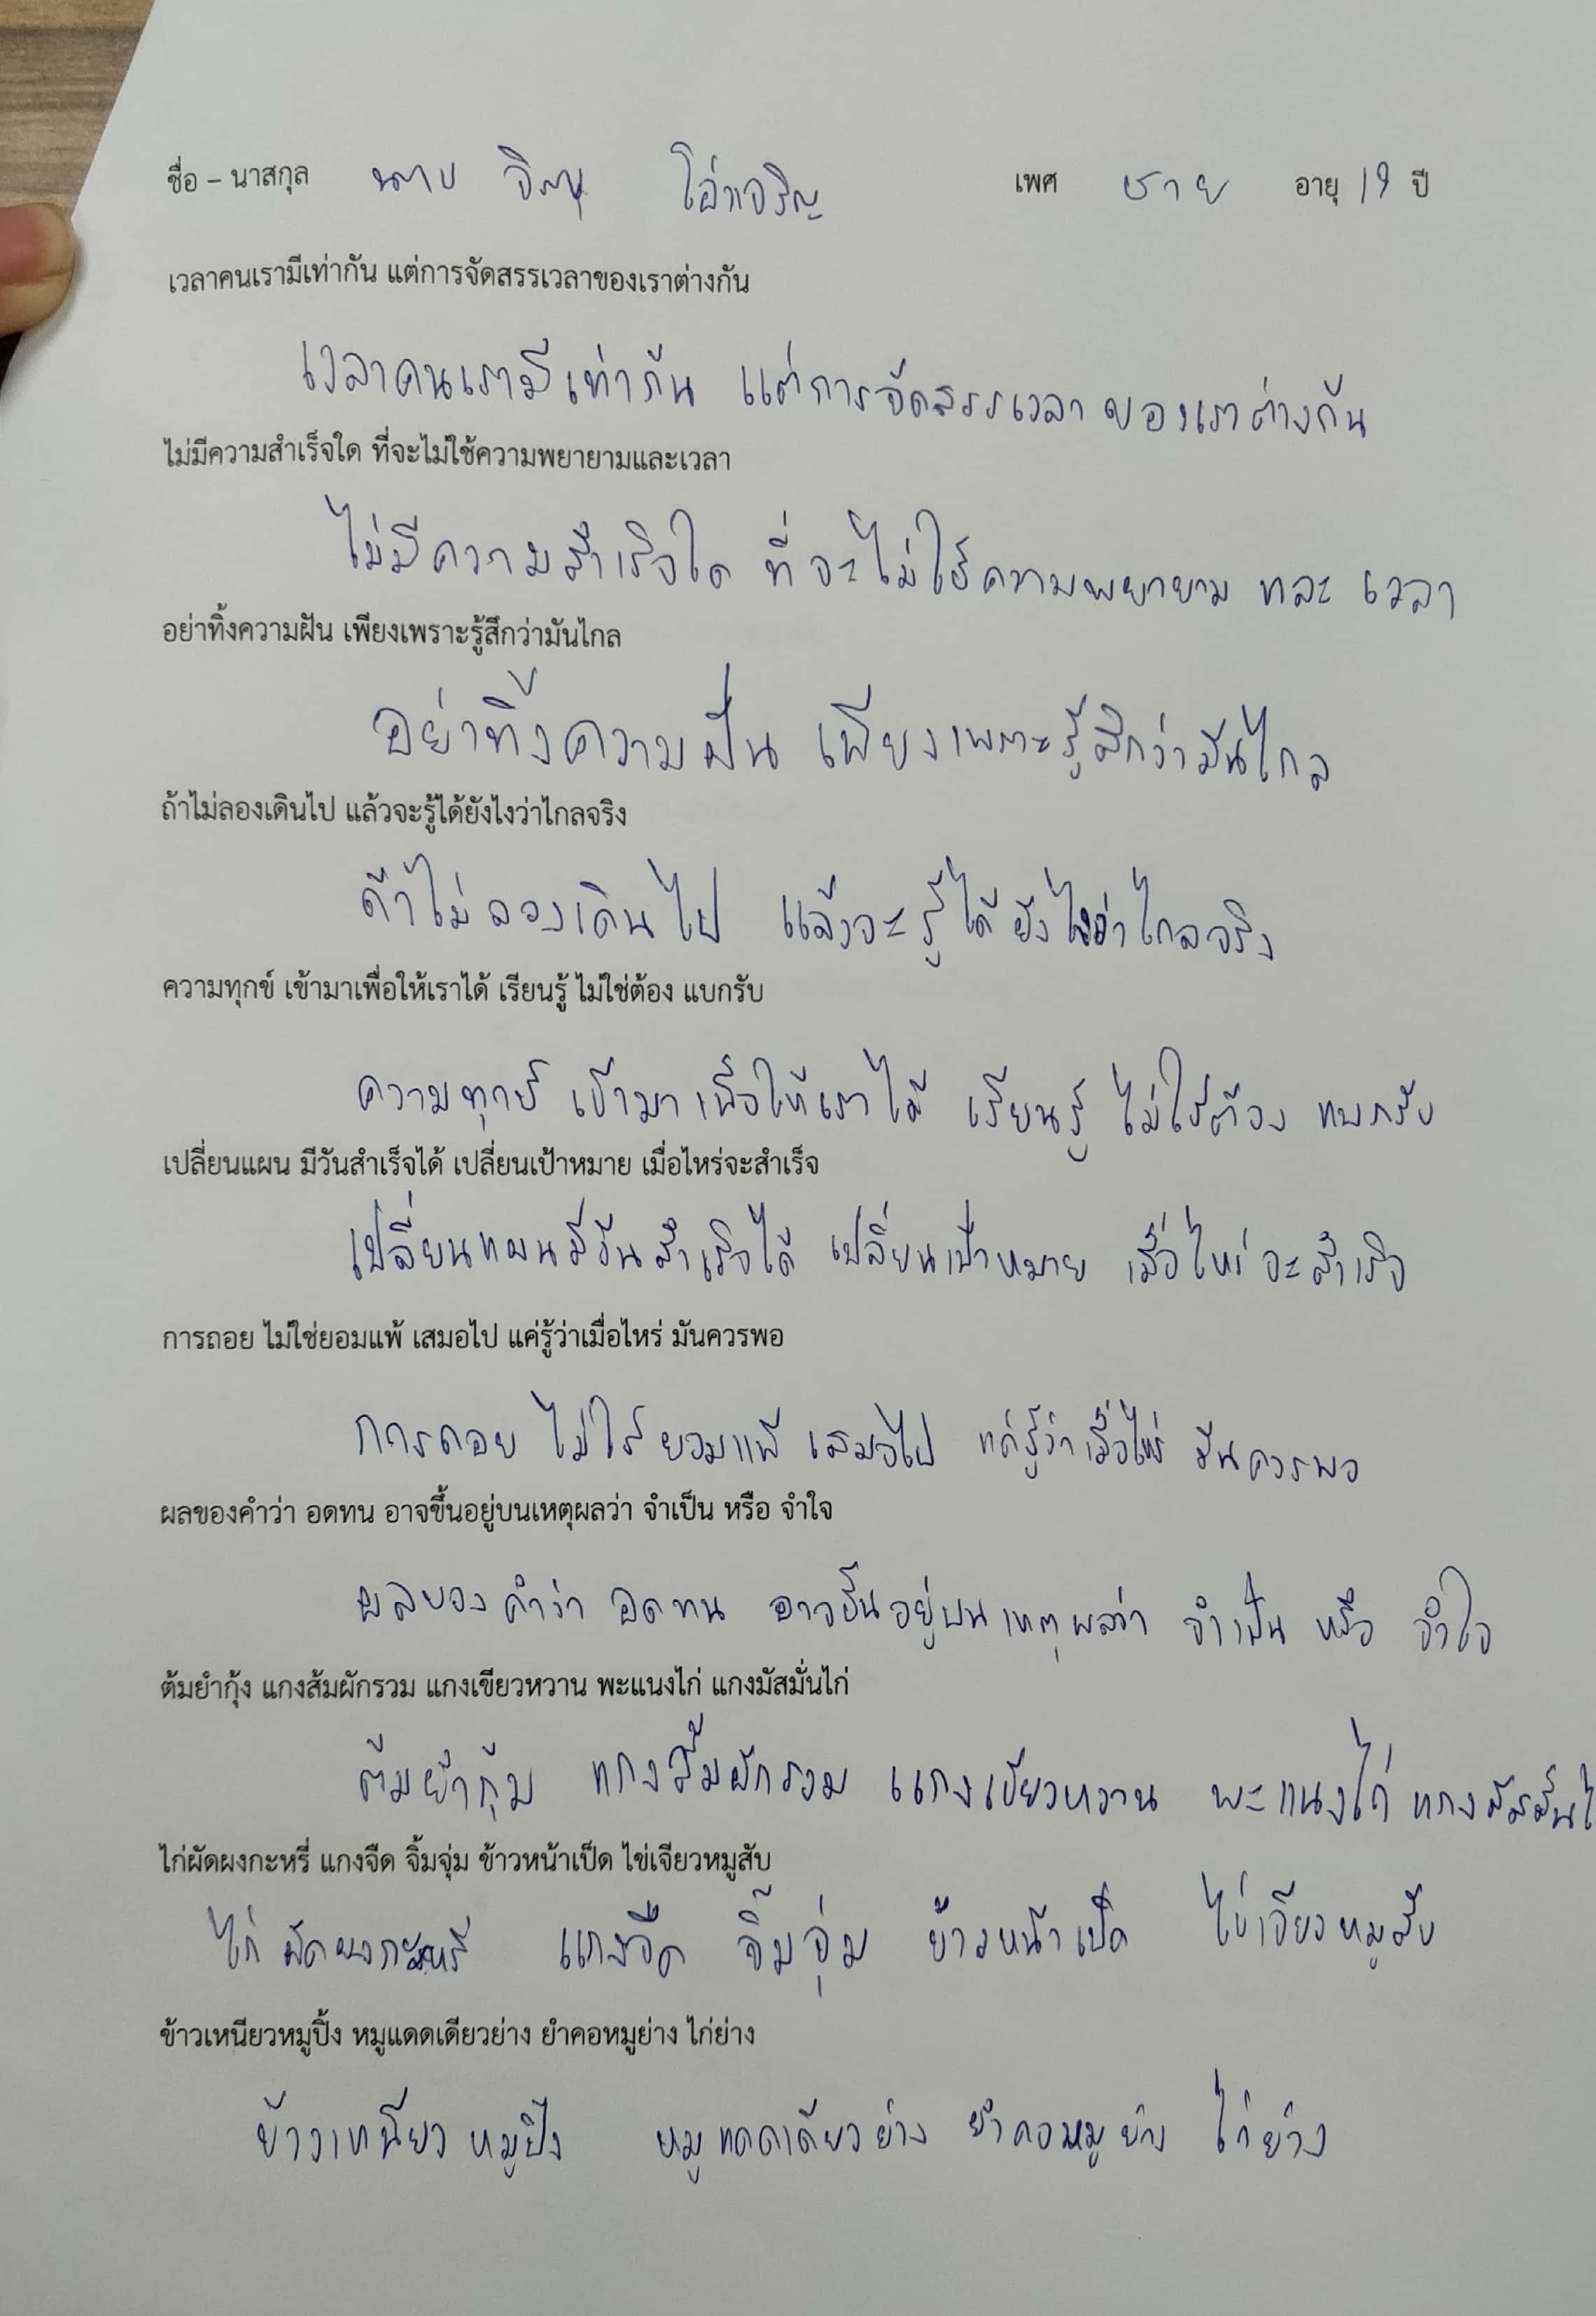 ชื่อ – นาสกุล นาย เพศ ชาย อายุ 19 ปี
เวลาคนเรามีเท่ากัน แต่การจัดสรรเวลาของเราต่างกัน
เวลาคนเรามีเท่ากัน แต่การจัดสรรเวลาของเราต่างกัน
ไม่มีความสำเร็จใด ที่จะไม่ใช้ความพยายามและเวลา
ไม่มีความสำเร็จใด ที่จะไม่ใช้ความพยายาม และ เวลา
อย่าทิ้งความฝัน เพียงเพราะรู้สึกว่ามันไกล
อย่าทิ้งความฝัน เพียงเพราะรู้สึกว่ามันไกล
ถ้าไม่ลองเดินไป แล้วจะรู้ได้ยังไงว่าไกลจริง
ถ้าไม่ลองเดินไป แล้วจะรู้ได้ยังไงว่าไกลจริง
ความทุกข์ เข้ามาเพื่อให้เราได้ เรียนรู้ ไม่ใช่ต้อง แบกรับ
ความทุกข์ เข้ามาเพื่อให้เราได้ เรียนรู้ ไม่ใช่ต้อง แบกรับ
เปลี่ยนแผน มีวันสำเร็จได้ เปลี่ยนเป้าหมาย เมื่อไหร่จะสำเร็จ
เปลี่ยนแผนมีวันสำเร็จได้ เปลี่ยนเป้าหมาย เมื่อไหร่จะสำเร็จ
การถอย ไม่ใช่ยอมแพ้ เสมอไป แค่รู้ว่าเมื่อไหร่ มันควรพอ
การถอย ไม่ใช่ยอมแพ้ เสมอไป แค่รู้ว่าเมื่อไหร่ มันควรพอ
ผลของคำว่า อดทน อาจขึ้นอยู่บนเหตุผลว่า จำเป็น หรือ จำใจ
ผลของคำว่า อดทน อาจขึ้นอยู่บนเหตุผลว่า จำเป็น หรือ จำใจ
ต้มยำกุ้ง แกงส้มผักรวม แกงเขียวหวาน พะแนงไก่ แกงมัสมั่นไก่
ต้มยำกุ้ง แกงส้มผักรวม แกงเขียวหวาน พะแนงไก่ แกงมัสมั่นไ
ไก่ผัดผงกะหรี่ แกงจืด จิ้มจุ่ม ข้าวหน้าเป็ด ไข่เจียวหมูสับ
ไก่ผัดผงกะหรี่ แกงจืด จิ้มจุ่ม ข้าวหน้าเป็ด ไข่เจียวหมูสับ
ข้าวเหนียวหมูปิ้ง หมูแดดเดียวย่าง ยำคอหมูย่าง ไก่ย่าง
ข้าวเหนียวหมูปิ้ง หมูแดดเดียวย่าง ยำคอหมูย่าง ไก่ย่าง